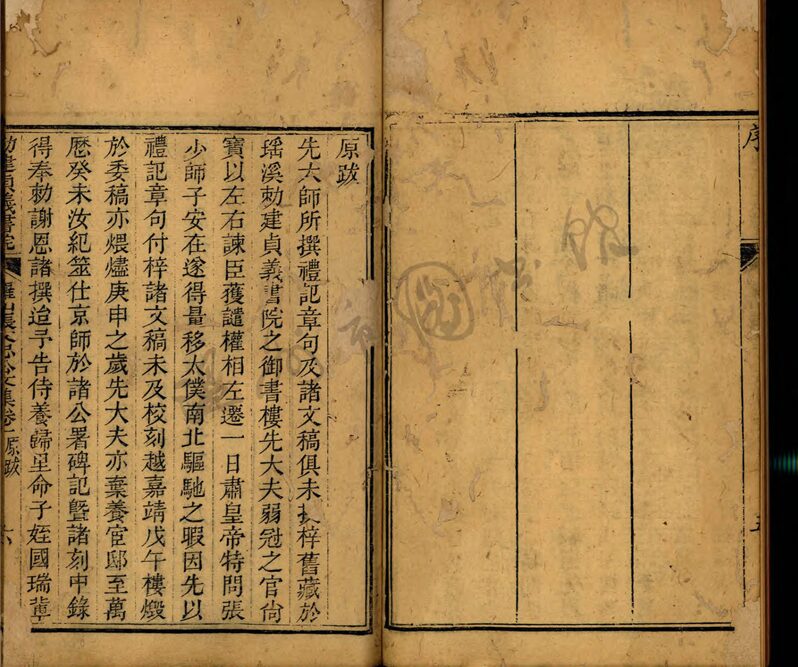 序
五
原跋
先太師所撰禮記章句及諸文稿俱未梓舊藏於
瑶溪勑建貞義書院之御書樓先大夫弱冠之官尙
寶以左右諫臣獲譴權相左遷一日肅皇帝特問張
少師子安在遂得量移太僕南北驅馳之暇因先以
禮記章句付梓諸文稿未及校刻越嘉靖戊午樓燬
於委稿亦煨燼庚申之歲先大夫亦棄養宦邸至萬
歷癸未汝紀筮仕京師於諸公署碑記曁諸刻中錄
得奉勑謝恩諸撰迨予告侍養歸里命子姪國瑞
勑建貞義書院
集卷 原跋
六